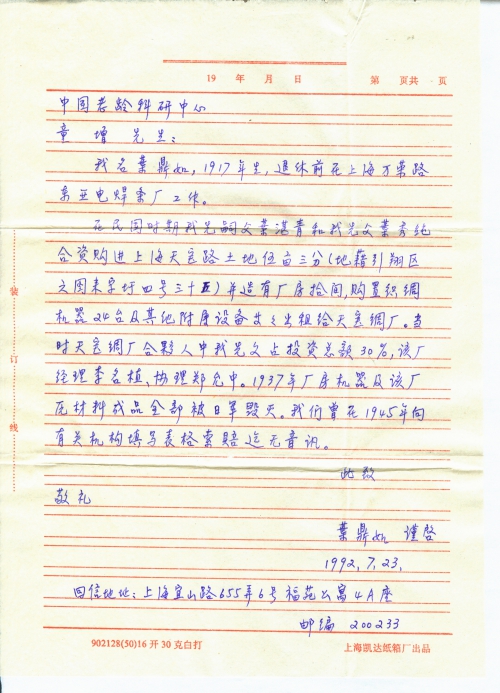 19 年 月 日 第 页共 页
中国老龄科研中心
童增 先生：
我名葉鼎如，1917年生，退休前在上海万荣路
东亚电焊条厂工作。
在民国时期我先嗣父葉湛青和我先父葉秀纯
合资购进上海天宝路土地伍亩三分(地籍引翔区
之图未字圩四号三十五)并造有厂房拾间，购置织绸
机器24台及其他附属设备出租给天宝绸厂。当
时天宝绸厂合夥人中我先父占投资总额30%，该厂
经理李名植、协理郑允中。1937年厂房机器及该厂
原材料成品全部被日軍毁灭。我们曾在1945年向
有关机构填写表格索赔迄无音讯。
此致
敬礼
葉鼎如 谨啓
1992.7.23.
回信地址：上海宜山路655弄6号福苑公寓4A座
邮编 200233
902128(50)16开30克白打 上海凯达纸箱厂出品
装
订
线